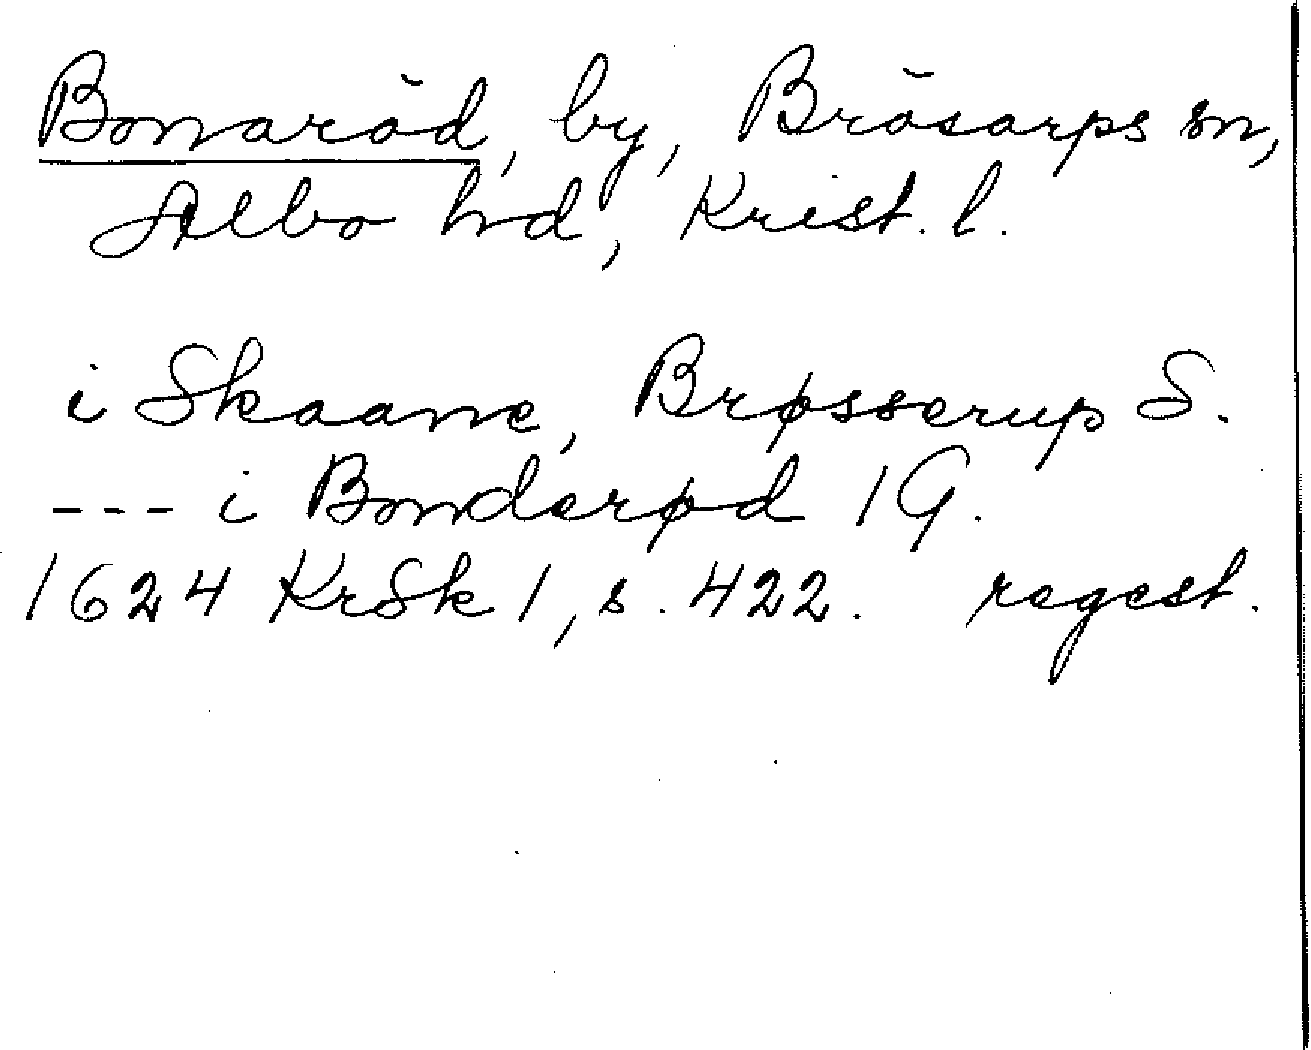 Bonnaröd, by, Brösarps sn,
Albo hd, Krist. l.
i Skaane, Brøsserup S.
--- i Bonderød 1 G.
1624 KrSk 1, s. 422. regest.